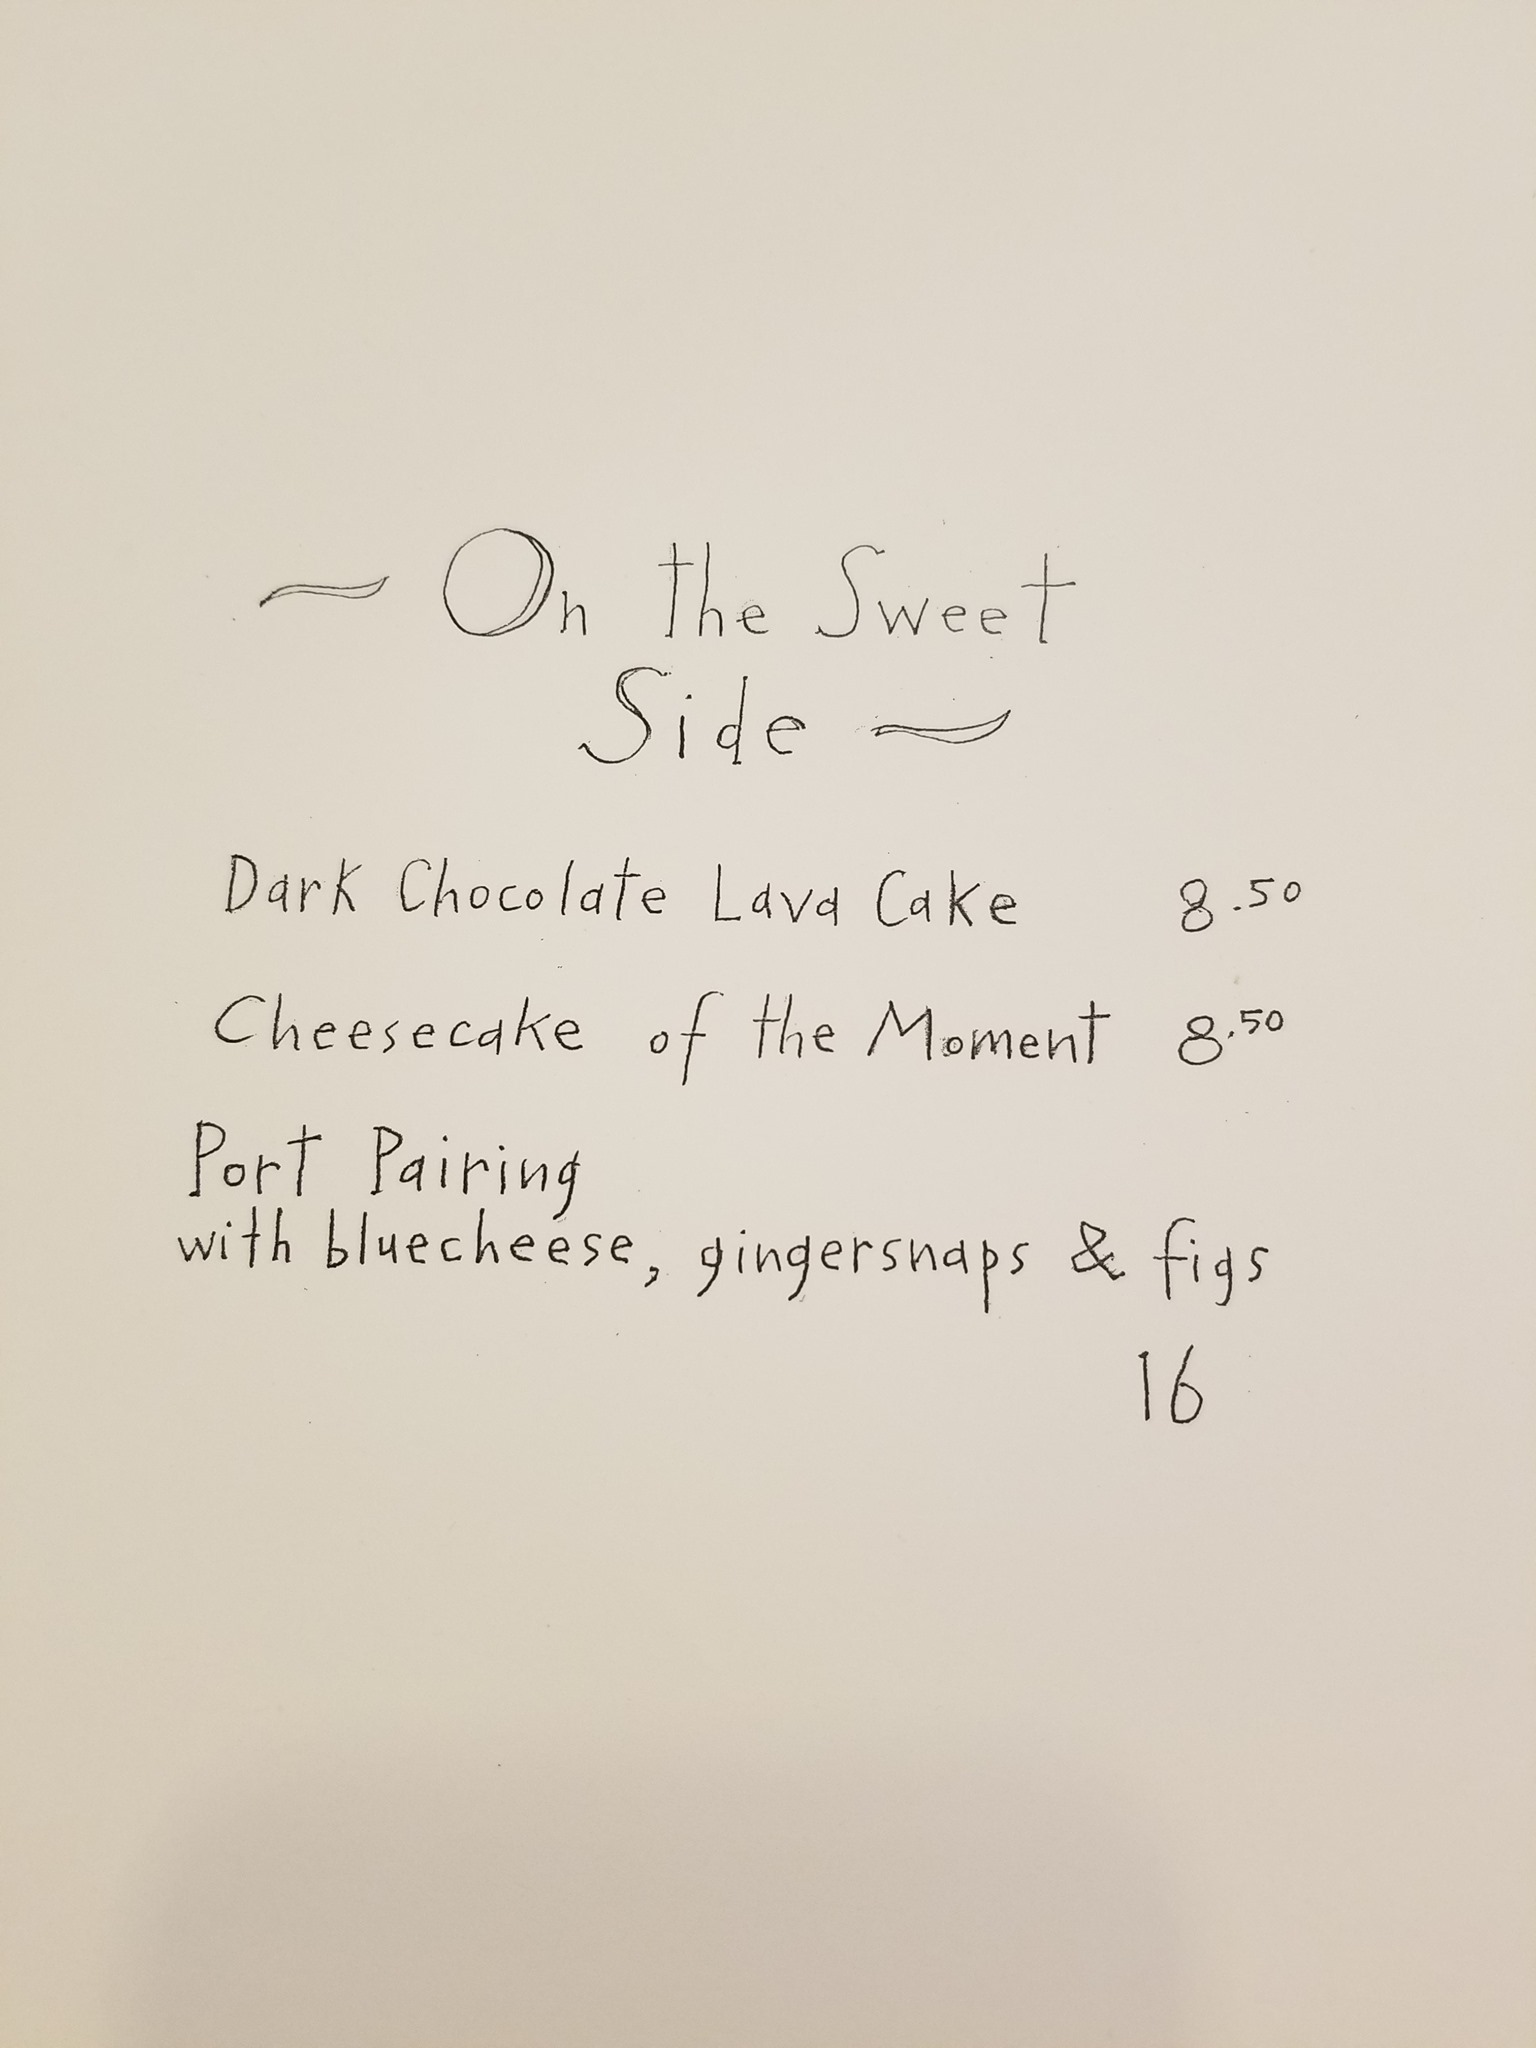 ~ On the Sweet
Side ~
Dark Chocolate Lava Cake 8.50
Cheesecake of the Moment 8.50
Port Pairing
with bluecheese, gingersnaps & figs
16